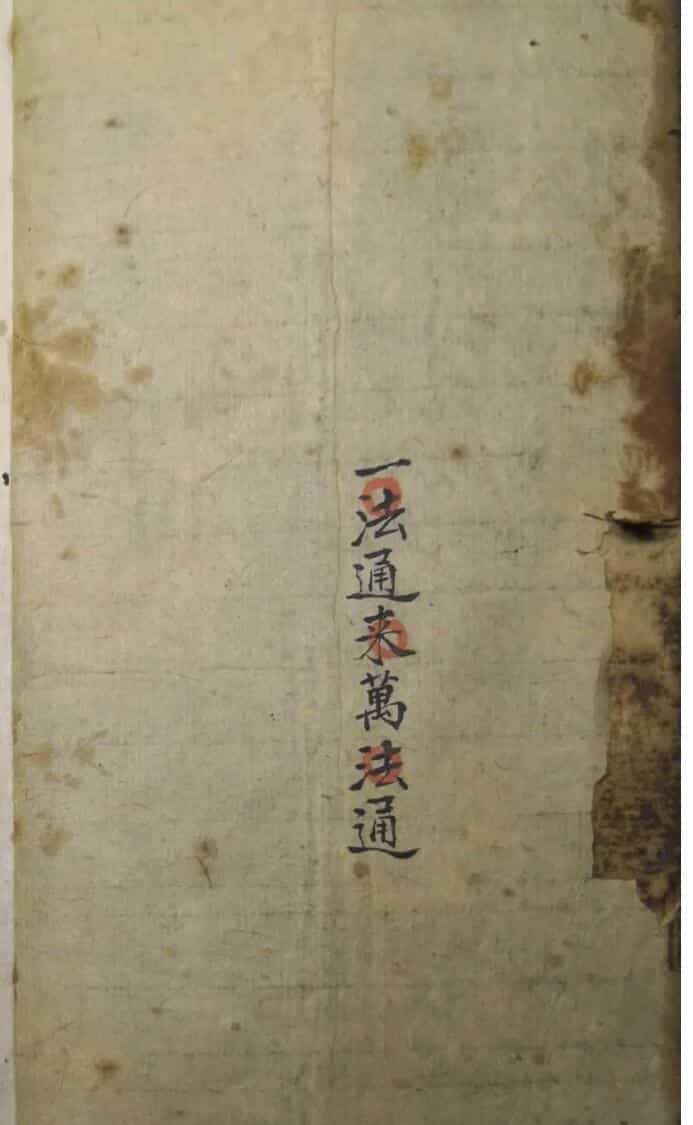 一法通来萬法通